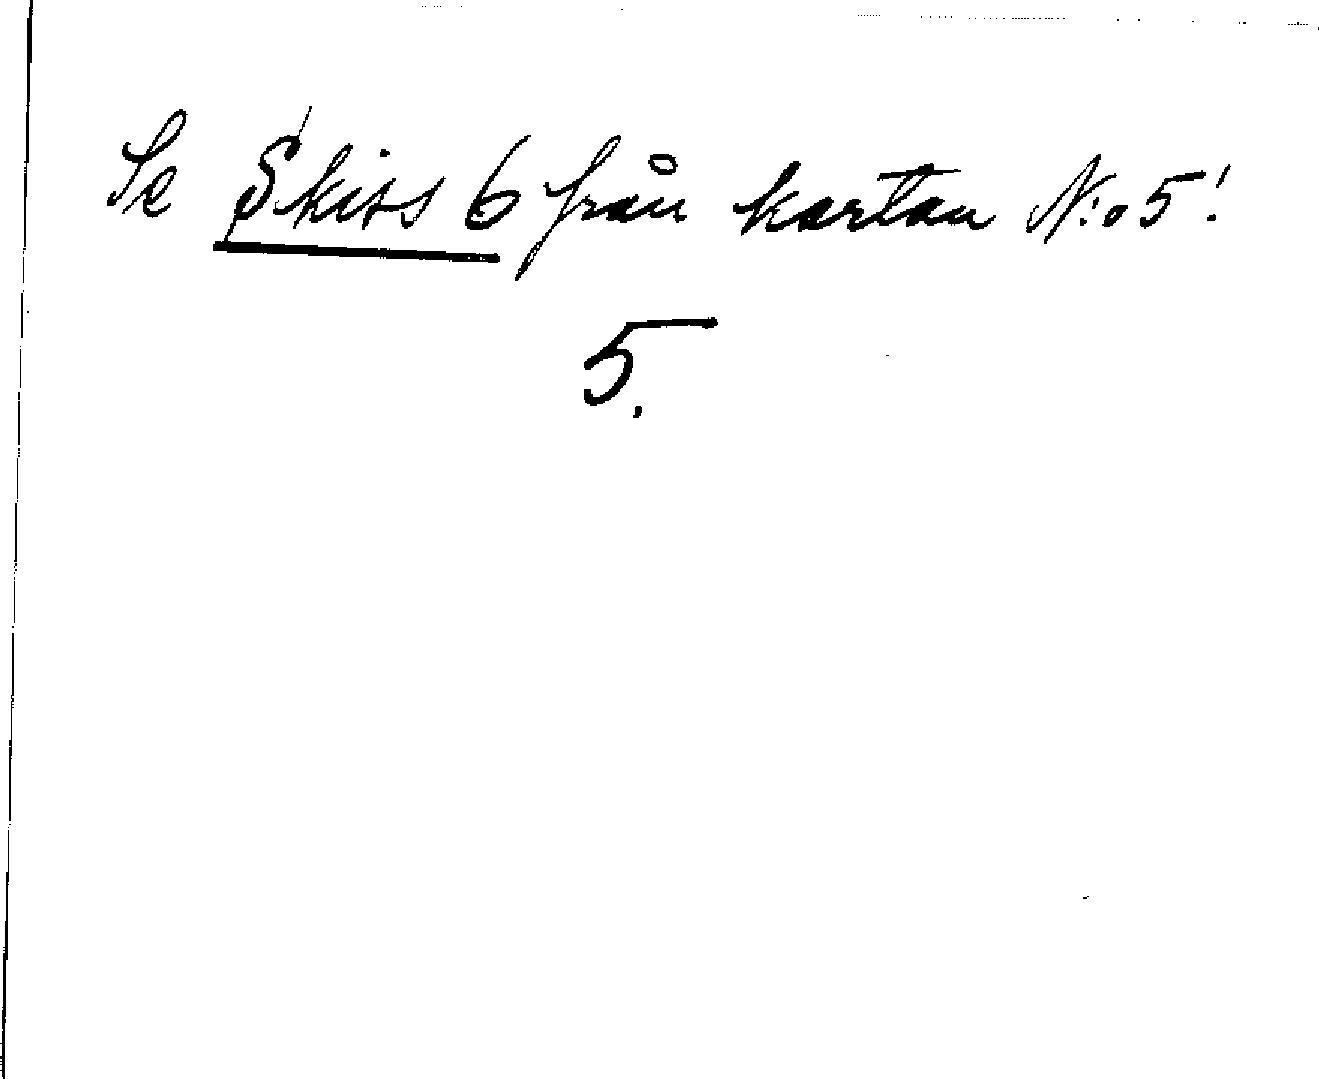 Se Skiss 6 från kartan N:o 5!
5.